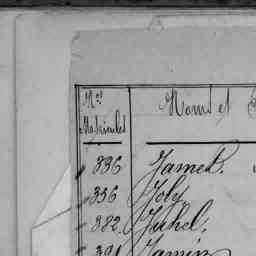 Nos Matricules
Noms et
336 Jamet.
356 Joly
382 Juhel,
391 Jamin